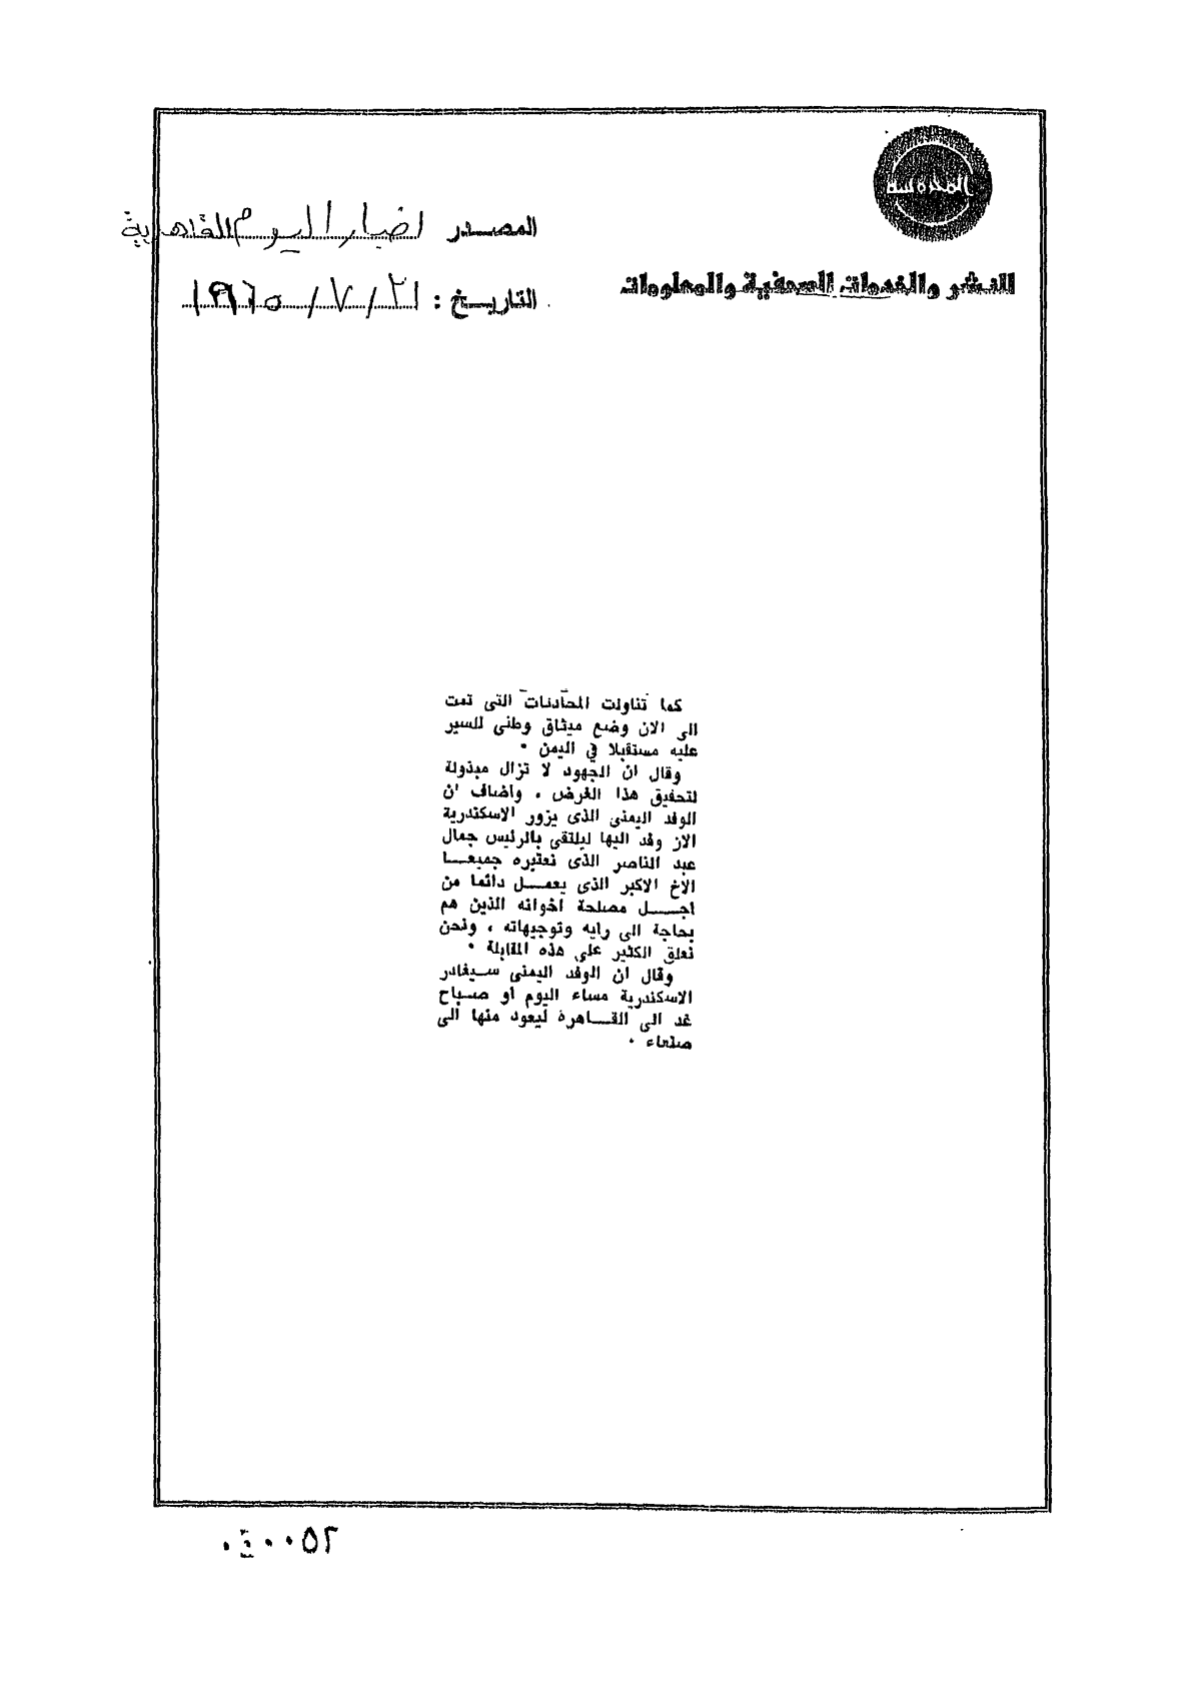 المحروسة
للنشر والخدمات الصحفية والمعلومات
المصدر اخبار اليوم القاهرية
التاريخ : ٣١ / ٧ / ١٩٦٥
كما تناولت المحادثات التى تمت
الى الان وضع ميثاق وطنى للسير
عليه مستقبلا فى اليمن .
وقال ان الجهود لا تزال مبذولة
لتحقيق هذا الغرض ، واضاف ان
الوفد اليمنى الذى يزور الاسكندرية
الان وفد اليها ليلتقى بالرئيس جمال
عبد الناصر الذى نعتبره جميعا
الاخ الاكبر الذى يعمل دائما من
اجل مصلحة اخوانه الذين هم
بحاجة الى رايه وتوجيهاته ، ونحن
نعلق الكثير على هذه المقابلة .
وقال ان الوفد اليمنى سيغادر
الاسكندرية مساء اليوم او صباح
غد الى القاهرة ليعود منها الى
صنعاء .